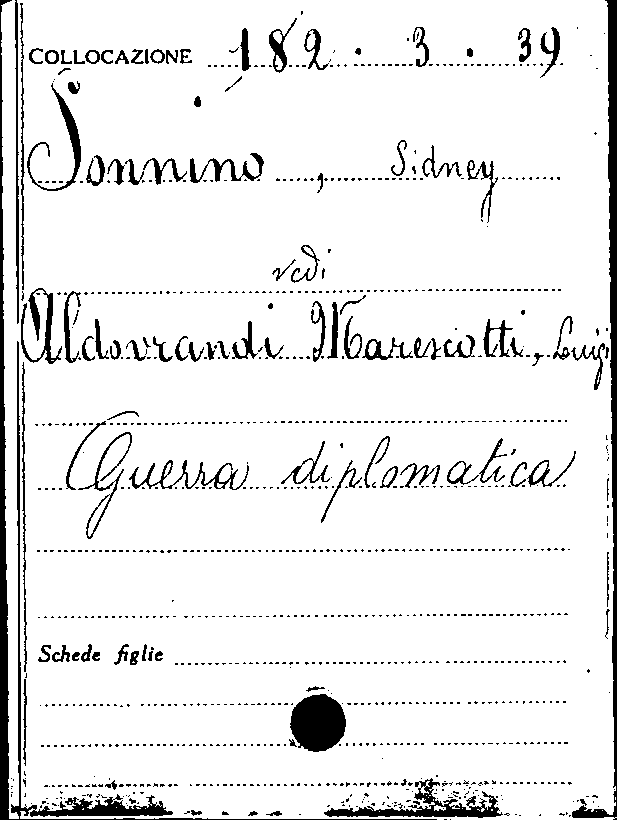 COLLOCAZIONE 182.3.39
Sonnino, Sidney
vedi
Aldovrandi Marescotti, Luigi
Guerra diplomatica
Schede figlie